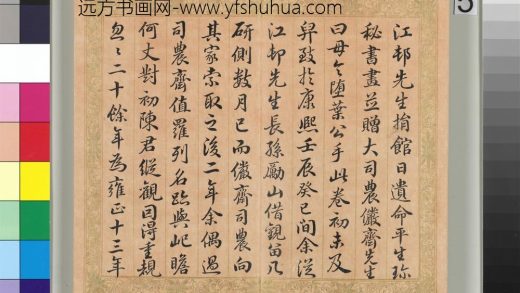 远方书画网-www.yfshuhua.com
5
江邨先生捐館日遺命平生珎
秘書畫並贈大司農儼齋先生
曰毋令堕葉公手此卷初未及
舁致於康熙壬辰癸巳間余從
江邨先生長孫勵山借觀留几
研側數月已而儼齋司農向
其家索取之後二年余偶過
司農齋值羅列名跡與屺瞻
何丈對初陳君縱觀因得重覩
忽〻二十餘年為雍正十三年